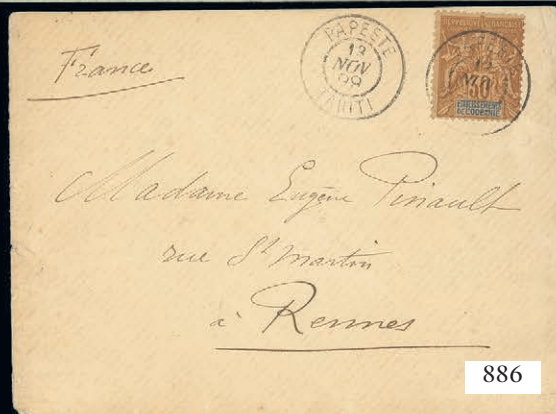 France
PAPEETE
13
NOV
99
TAHITI
REPUBLIQUE FRANCAISE
30
ETABLISSEMENTS
DE L'OCEANIE
Madame Eugène Pinault
rue St Martin
à Rennes
886